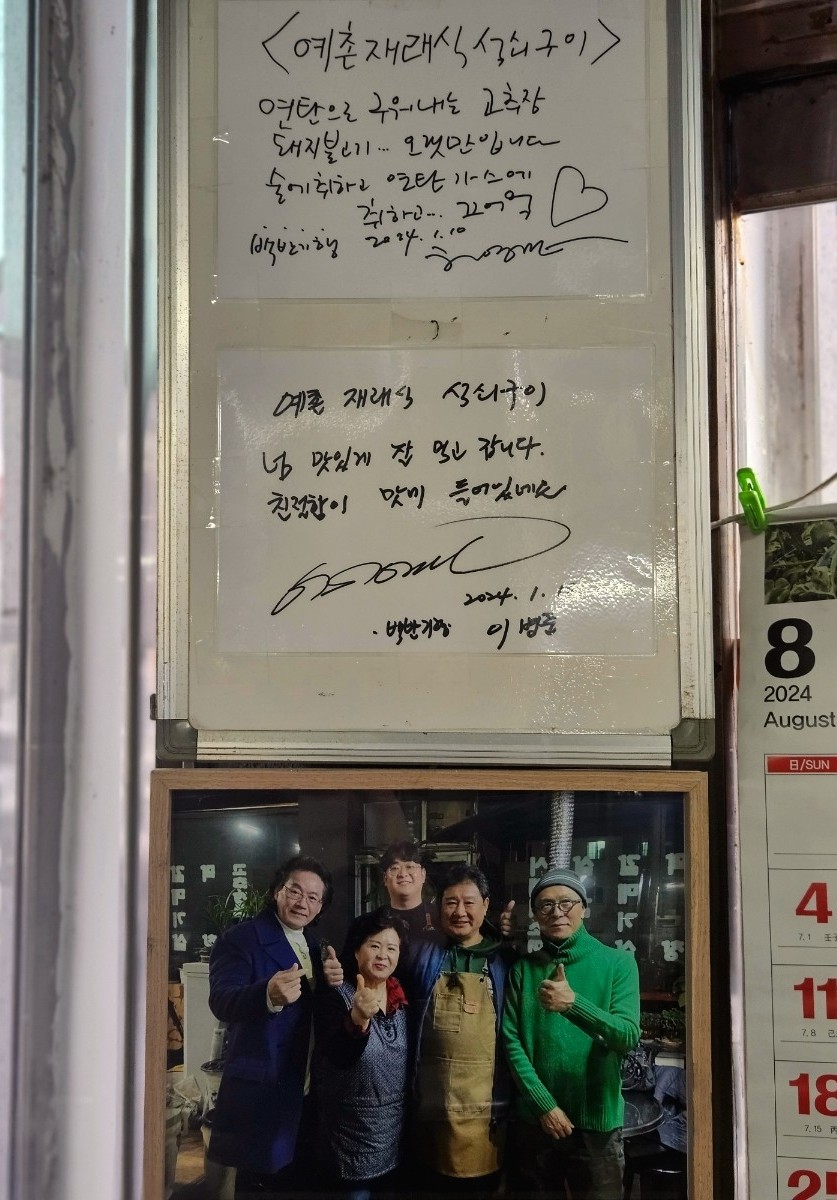 <예촌재래식석쇠구이>
연탄으로 구워내는 고추장
돼지불고기... 오랫만입니다
술에취하고 연탄 가스에
취하고... 끄어억
백반기행 2024.1.10
예촌 재래식 석쇠구이
넘 맛있게 잘 먹고 갑니다.
친절함이 맛에 들어있네요
2024.1.1
백반기행 이범준
8
2024
August
日/SUN
4
7.1
11
7.8
18
7.15